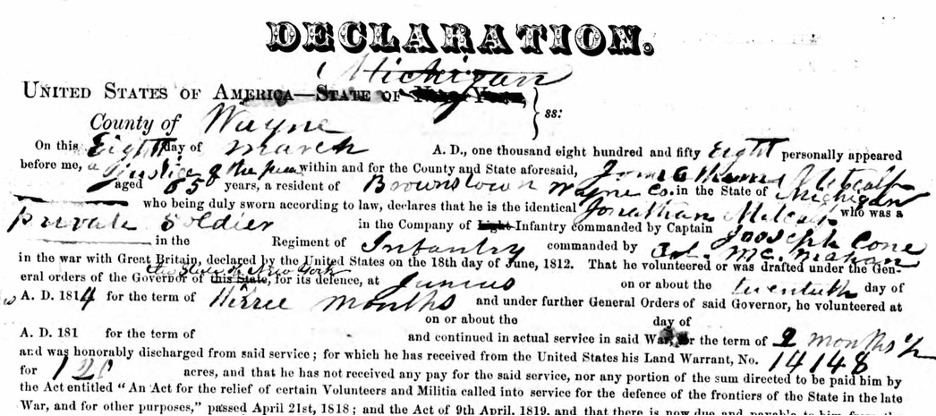 DECLARATION.
Michigan
UNITED STATES OF AMERICA—STATE OF NEW YORK, } ss:
County of Wayne
On this Eighth day of March A. D., one thousand eight hundred and fifty Eight personally appeared
before me, a Justice of the peace within and for the County and State aforesaid, Jonathan Metcalf
aged 65 years, a resident of Brownstown Wayne Co. in the State of Michigan
who being duly sworn according to law, declares that he is the identical Jonathan Metcalf who was a
Private Soldier in the Company of Light Infantry commanded by Captain Joseph Cone
in the Regiment of Infantry commanded by Col.
in the war with Great Britain, declared by the United States on the 18th day of June, 1812. That he volunteered or was drafted under the Gen-
eral orders of the Governor of this State, the State of New York for its defence, at Junius on or about the twentieth day of
A. D. 1814 for the term of Three months and under further General Orders of said Governor, he volunteered at
on or about the day of
A. D. 181 for the term of and continued in actual service in said War, for the term of 2 months
and was honorably discharged from said service; for which he has received from the United States his Land Warrant, No. 14148
for 120 acres, and that he has not received any pay for the said service, nor any portion of the sum directed to be paid him by
the Act entitled "An Act for the relief of certain Volunteers and Militia called into service for the defence of the frontiers of the State in the late
War, and for other purposes," passed April 21st, 1818; and the Act of 9th April, 1819, and that there is now due and payable to him from the